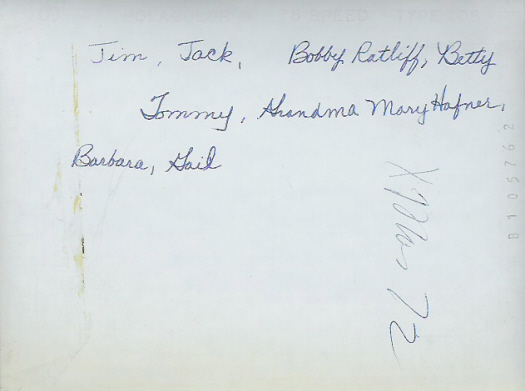 Jim, Jack, Bobby Ratliff, Betty
Tommy, Grandma Mary Hafner,
Barbara, Gail
72
8105762